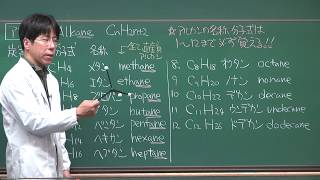 Alkane CnH2n+2
☆アルカンの名称、分子式は
1~12まで必ず覚える!!
分子式 名称
メタン methane
H6 エタン ethane
propane
ブタン butane
12 ペンタン pentane
H14 ヘキサン hexane
H16 ヘプタン heptane
8. C8H18 オクタン octane
9 C9H20 ノナン nonane
10 C10H22 デカン decane
11 C11H24 ウンデカン undecane
12 C12H26 ドデカン dodecane